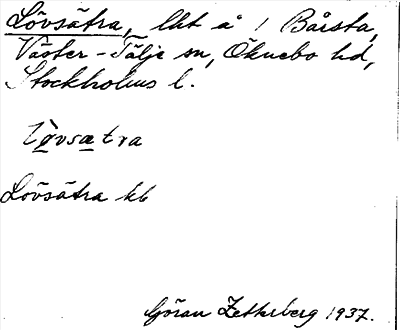 Lövsätra, lht å 1 Bårsta,
Väster-Tälje sn, Öknebo hd,
Stockholms l.
lø̀vsætra
Lövsätra kb
Göran Zetterberg 1937.